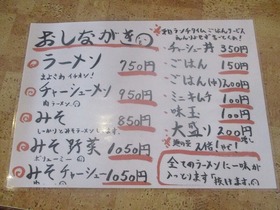 おしながき
ラーメン 750円
まよったら イチオシ!
チャーシューメン 950円
肉ラーメン
みそ 850円
しっかりとみそラーメンします。
みそ野菜 1050円
ボリューミー
みそチャーシュー 1050円
平日ランチタイム ごはんサービス
チャーシュー丼 350円
ごはん 150円
ごはん(小) 100円
ミニキムチ 100円
味玉 100円
大盛り 200円
全てのラーメンに一味が
入っとります「抜けます。」